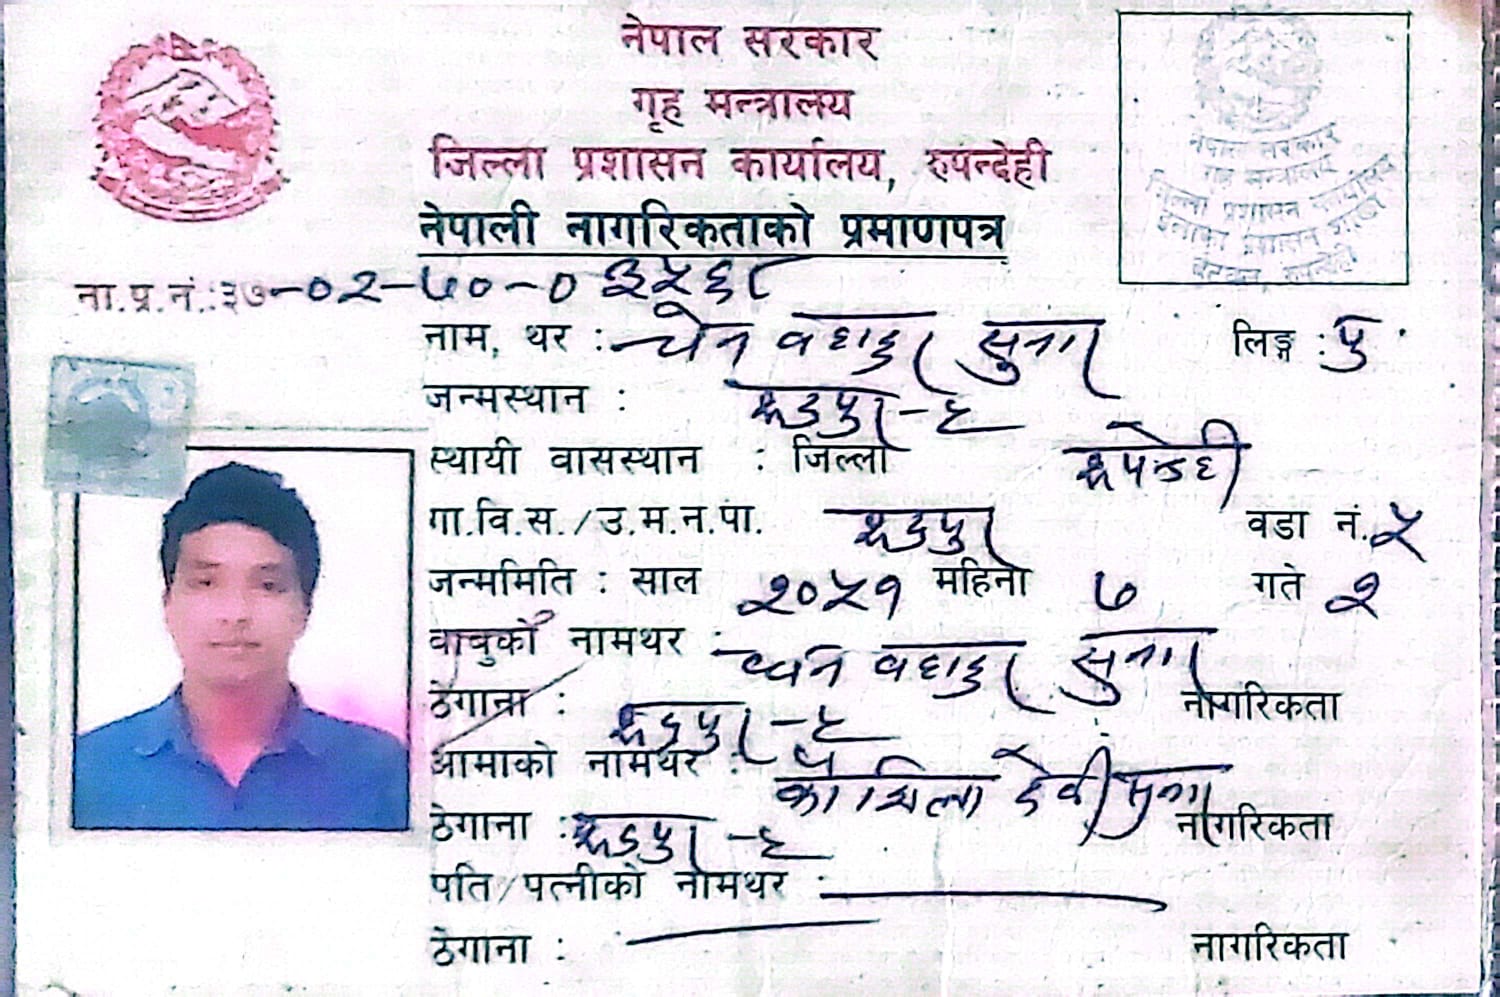 नेपाल सरकार
गृह मन्त्रालय
जिल्ला प्रशासन कार्यालय, रुपन्देही
नेपाली नागरिकताको प्रमाणपत्र
नेपाल सरकार
गृह मन्त्रालय
जिल्ला प्रशासन कार्यालय
इलाका प्रशासन
बुटवल, रुपन्देही
ना.प्र.नं.:३७-०२-७०-०३२५६८
नाम, थर : चेन बहादुर सुनार लिङ्ग : पु
जन्मस्थान : रुद्रपुर -६
स्थायी वासस्थान : जिल्ला रुपन्देही
गा.वि.स./उ.म.न.पा. रुद्रपुर वडा नं. ५
जन्ममिति : साल २०५१ महिना ७ गते २
बाबुको नामथर : बहादुर सुनार
ठेगाना : रुद्रपुर -६ नागरिकता
आमाको नामथर : देवी सुनार
ठेगाना : रुद्रपुर -६ नागरिकता
पति/पत्नीको नामथर :
ठेगाना : नागरिकता